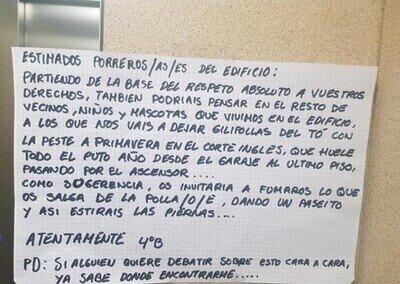 ESTIMADOS PORREROS/AS/ES DEL EDIFICIO:
PARTIENDO DE LA BASE DEL RESPETO ABSOLUTO A VUESTROS
DERECHOS, TAMBIEN PODRIAIS PENSAR EN EL RESTO DE
VECINOS, NIÑOS Y MASCOTAS QUE VIVIMOS EN EL EDIFICIO,
A LOS QUE NOS VAIS A DEJAR GILIPOLLAS DEL TO' CON
LA PESTE A PRIMAVERA EN EL CORTE INGLES, QUE HUELE
TODO EL PUTO AÑO DESDE EL GARAJE AL ULTIMO PISO,
PASANDO POR EL ASCENSOR....
COMO SUGERENCIA, OS INVITARIA A FUMAROS LO QUE
OS SALGA DE LA POLLA/O/E, DANDO UN PASEITO
Y ASI ESTIRAIS LAS PIERNAS....
ATENTAMENTE 4ºB
PD: SI ALGUIEN QUIERE DEBATIR SOBRE ESTO CARA A CARA,
YA SABE DONDE ENCONTRARME.....